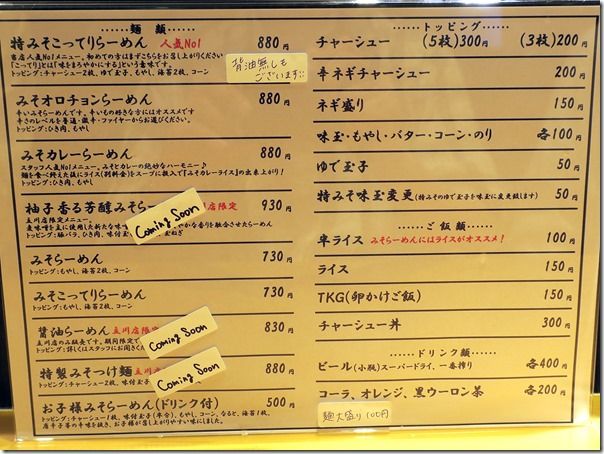 ……麺 類……
特みそこってりらーめん 人気No1 880円
当店人気No1メニュー。初めての方はまずこちらをお召し上がりください
「こってり」とは「味をまろやかにする」という意味です。
トッピング:チャーシュー2枚、ゆで玉子、もやし、海苔2枚、コーン
背油無しも
ございます!!
みそオロチョンらーめん 880円
辛いみそらーめんです。辛いもの好きな方にはオススメです
辛さのレベルを普通・激辛・ファイヤーからお選びください。
トッピング:ひき肉、もやし
みそカレーらーめん 880円
スタッフ人気No1メニュー。みそとカレーの絶妙なハーモニー♪
麺を食べ終えた後にライス(別料金)をスープに投入で『みそカレーライス』の出来上がり!
トッピング:ひき肉、もやし
柚子香る芳醇みそらーめん 立川店限定 930円
立川店限定メニュー。
Coming Soon
みそらーめん 730円
トッピング:もやし、海苔2枚、コーン
みそこってりらーめん 730円
トッピング:もやし、海苔2枚、コーン
醤油らーめん 立川店限定 830円
立川店のみ販売です。期間限定で
トッピング:詳しくはスタッフにお聞きく
Coming Soon
特製みそつけ麺 立川店 880円
トッピング:チャーシュー2枚、味付玉子
Coming Soon
お子様みそらーめん(ドリンク付) 500円
トッピング:チャーシュー1枚、味付玉子(半分)、もやし、コーン、なると、海苔1枚、
唐辛子等の辛味を抜き、お子様が召し上がりやすい味にしました。
……トッピング……
チャーシュー (5枚)300円 (3枚)200円
辛ネギチャーシュー 200円
ネギ盛り 150円
味玉・もやし・バター・コーン・のり 各100円
ゆで玉子 50円
特みそ味玉変更(特みそのゆで玉子を味玉に変更致します) 50円
……ご飯類……
半ライス みそらーめんにはライスがオススメ! 100円
ライス 150円
TKG(卵かけご飯) 150円
チャーシュー丼 300円
……ドリンク類……
ビール(小瓶)スーパードライ、一番搾り 各400円
コーラ、オレンジ、黒ウーロン茶 各200円
麺大盛り100円